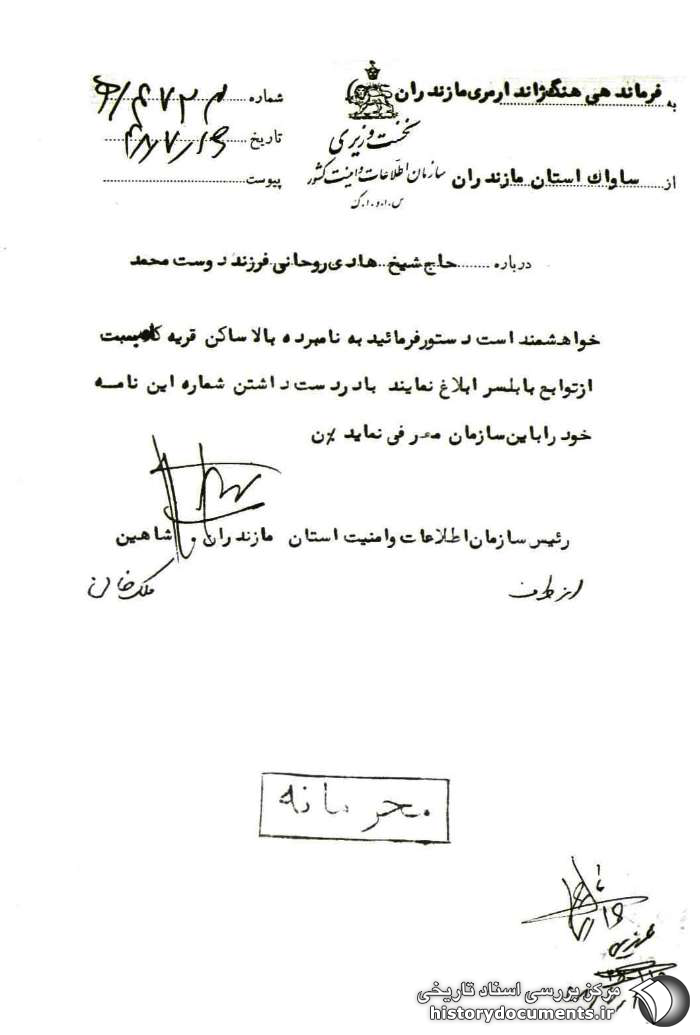 به فرماندهی هنگ ژاندارمری مازندران
از ساواک استان مازندران
نخست وزیری
سازمان اطلاعات و امنیت کشور
س.ا.و.ا.ک
شماره
تاریخ
پیوست
درباره حاج شیخ هادی روحانی فرزند دوست محمد
خواهشمند است دستور فرمائید به نامبرده بالا ساکن قریه
از توابع بابلسر ابلاغ نمایند با در دست داشتن شماره این نامه
خود را باین سازمان معرفی نماید
رئیس سازمان اطلاعات و امنیت استان مازندران شاهین
از طرف
محرمانه
مرکز بررسی اسناد تاریخی
historydocuments.ir